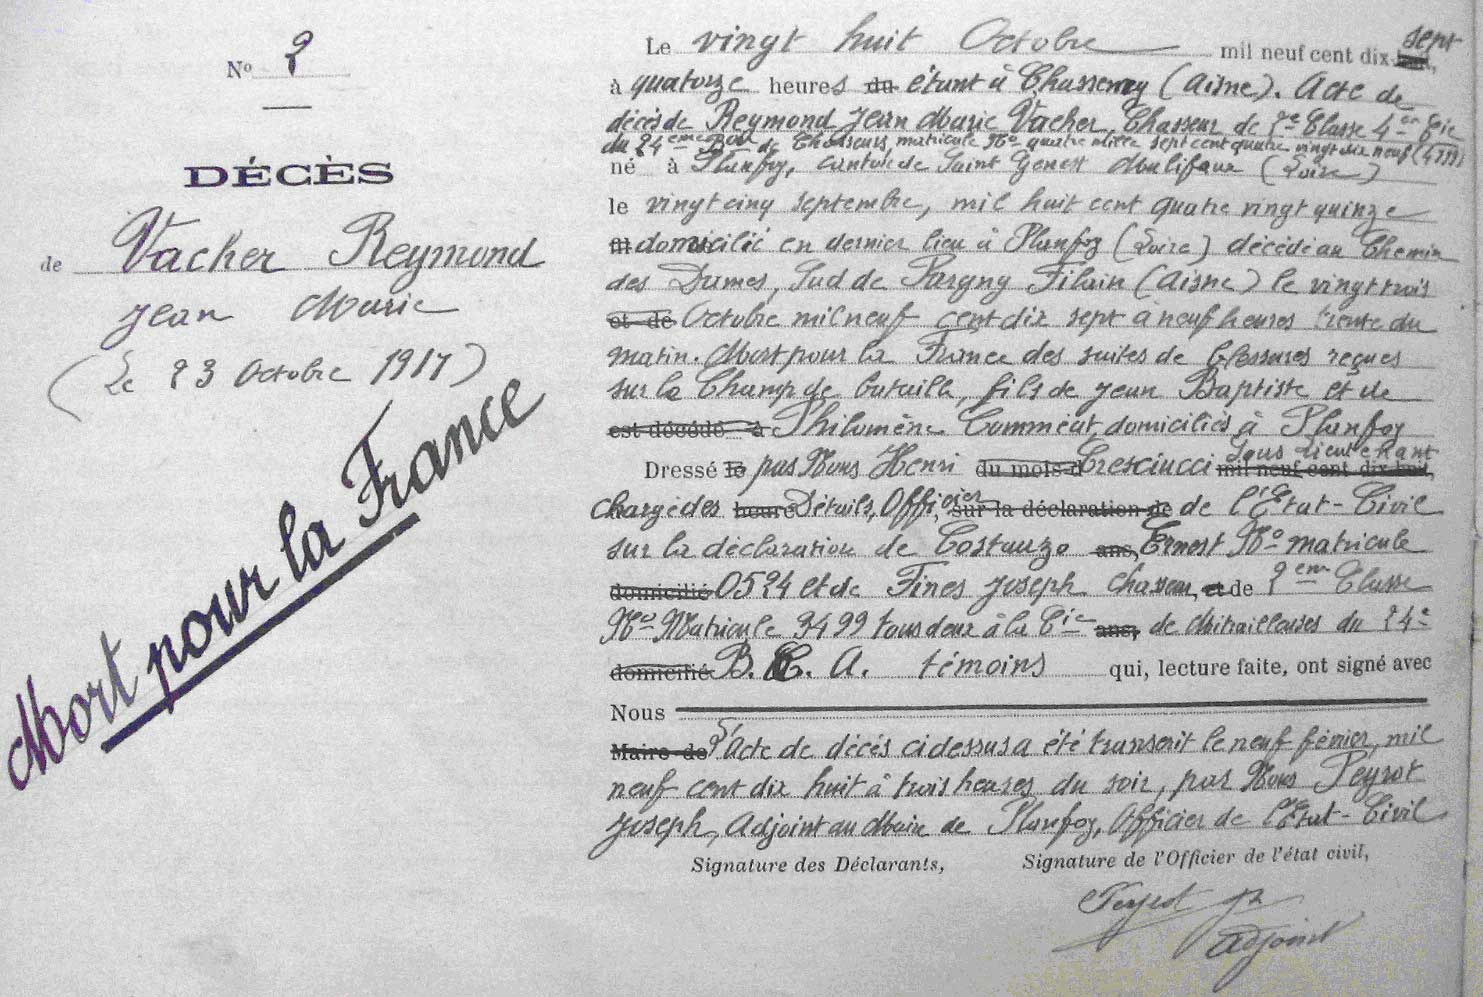 N° 2
DÉCÈS
de Vacher Reymond
Jean Marie
(Le 23 Octobre 1917)
Mort pour la France
Le vingt huit Octobre mil neuf cent dix-huit, sept
à quatorze heures du étant à Chassemy (Aisne). Acte de
décès de Reymond Jean Marie Vacher, Chasseur de 2e Classe 4em Cie
du 24eme Bon de Chasseurs, matricule No quatre mille sept cent quatre vingt dix neuf (4799)
né à Planfoy, canton de Saint Genest Malifaux (Loire)
le vingt cinq septembre, mil huit cent quatre vingt quinze
domicilié en dernier lieu à Planfoy (Loire) décédé au Chemin
des Dames, Sud de Pargny Filain (Aisne) le vingt trois
et de Octobre mil neuf cent dix sept à neuf heures trente du
matin. Mort pour la France des suites de blessures reçues
sur le Champ de bataille, fils de Jean Baptiste et de
est décédé à Philomène Comméat, domiciliés à Planfoy
Dressé le par Nous Henri du mois d Cresciucci Sous lieutenant mil neuf cent dix-huit,
chargé des heure Détails, Officier sur la déclaration de de l'État-Civil
sur la déclaration de Costanzo ans, Ernest No matricule
domicilié 0524 et de Fines Joseph Chasseur, et de 2em Classe
No Matricule 3499 tous deux à la Cie ans, de Mitrailleuses du 24e
domicilié B. C. A. témoins qui, lecture faite, ont signé avec
Nous
Maire de L'Acte de décés ci dessus a été transcrit le neuf février, mil
neuf cent dix huit à trois heures du soir, par Nous Peyrot
Joseph, Adjoint au Maire de Planfoy, Officier de l'État-Civil
Signature des Déclarants, Signature de l'Officier de l'état civil,
Peyrot
Adjoint